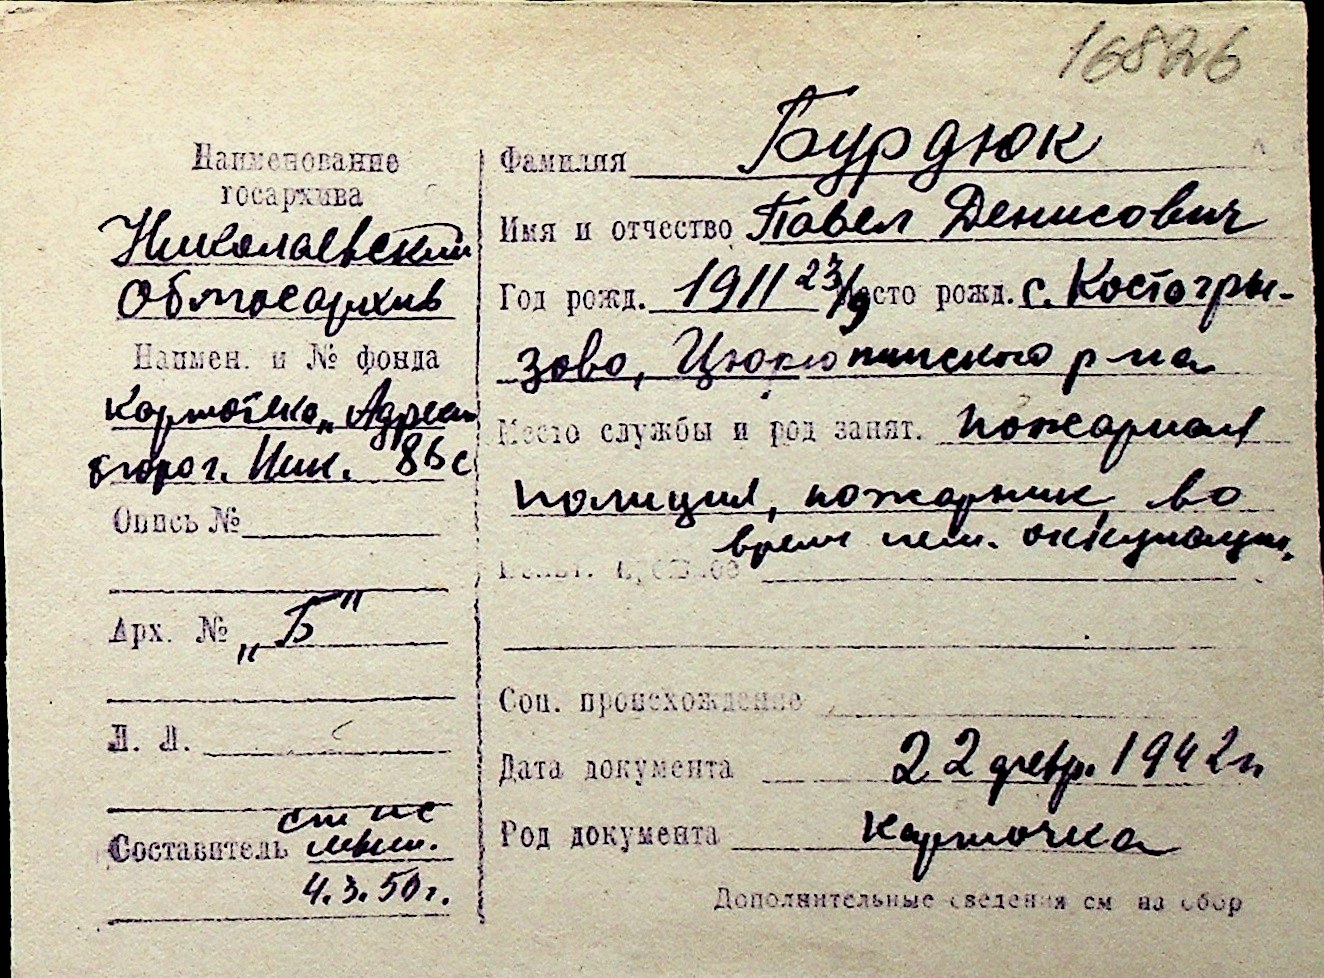 16826
Наименование
госархива
Николаевский
Облгосархив
Наимен. и № фонда
Картотека „Адресн
бюро г. Ник.
Опись №
Арх. № „Б"
Л. Л.
Составитель
4.3.50 г.
Фамилия Бурдюк
Имя и отчество Павел Денисович
Год рожд. 1911 23/9 Место рожд. с. Костогры-
зово, Цюрюпинского р-на
Место службы и род занят. пожарная
полиция, пожарник, во
время нем. оккупации,
Соц. происхождение
Дата документа 22 февр. 1942 г.
Род документа карточка
Дополнительные сведения см на обор